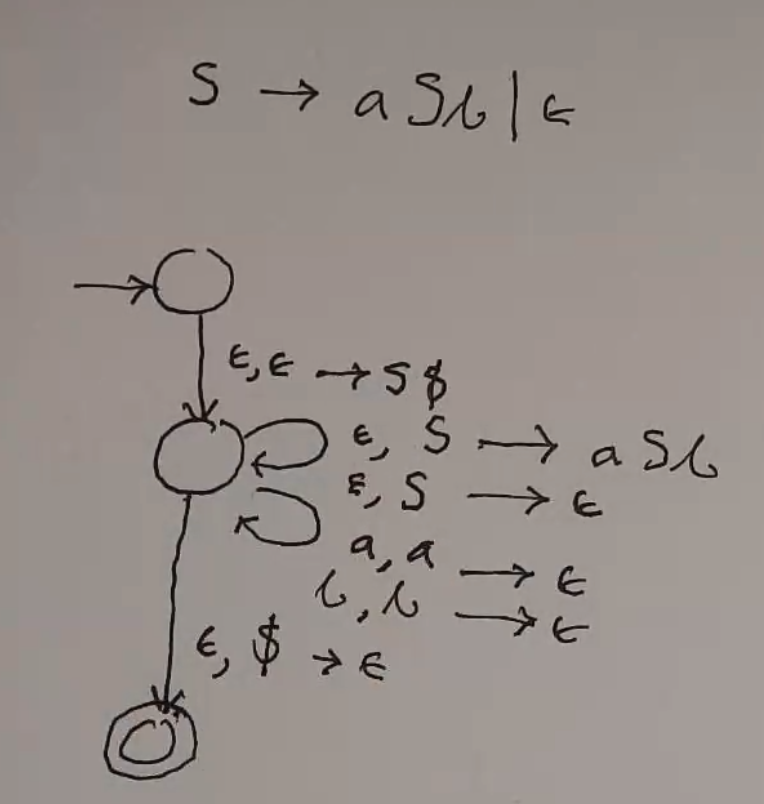 S → aSb | ε
ε, ε → S$
ε, S → aSb
ε, S → ε
a, a → ε
b, b → ε
ε, $ → ε